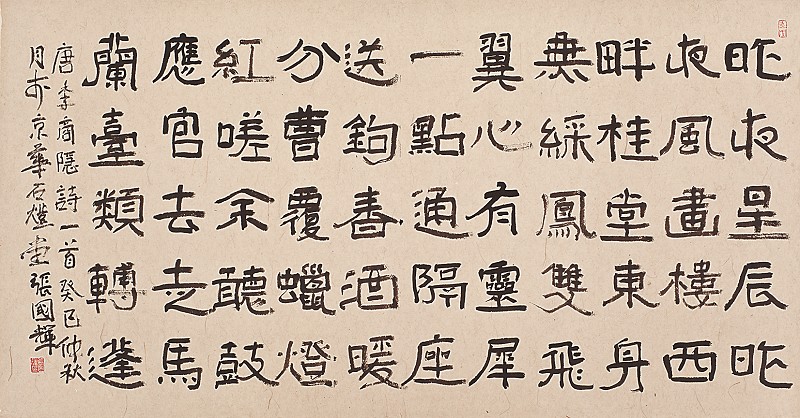 昨夜星辰昨
夜風畫樓西
畔桂堂東身
無綵鳳雙飛
翼心有靈犀
一點通隔座
送鉤春酒暖
分曹覆蠟燈
紅嗟余聽鼓
應官去走馬
蘭臺類轉蓬
唐李商隱詩一首癸巳仲秋
月於京華石燈堂張國輝